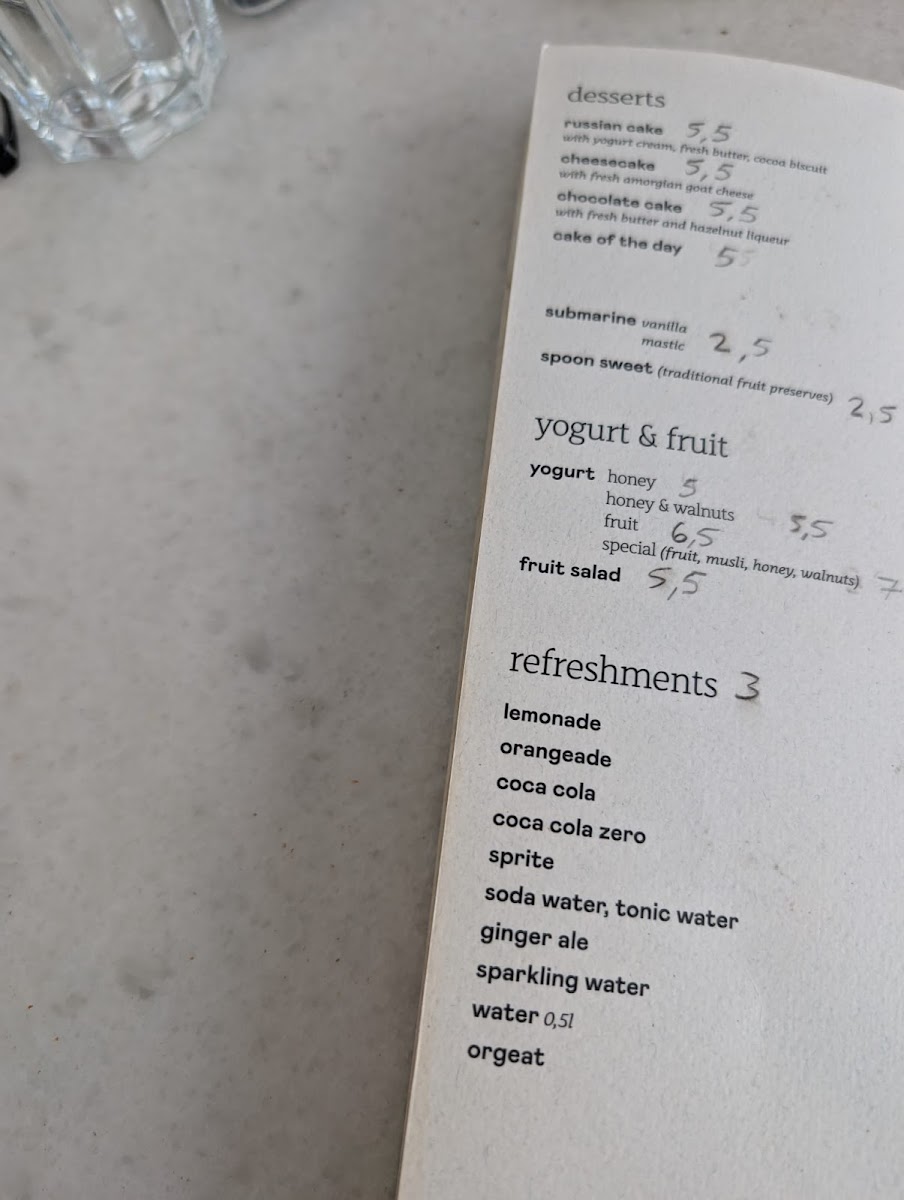 desserts
russian cake 5,5
with yogurt cream, fresh butter, cocoa biscuit
cheesecake 5,5
with fresh amorgian goat cheese
chocolate cake 5,5
with fresh butter and hazelnut liqueur
cake of the day 5
submarine vanilla
mastic 2,5
spoon sweet (traditional fruit preserves) 2,5
yogurt & fruit
yogurt honey 5
honey & walnuts 5,5
fruit 6,5
special (fruit, musli, honey, walnuts) 7
fruit salad 5,5
refreshments 3
lemonade
orangeade
coca cola
coca cola zero
sprite
soda water, tonic water
ginger ale
sparkling water
water 0,5l
orgeat